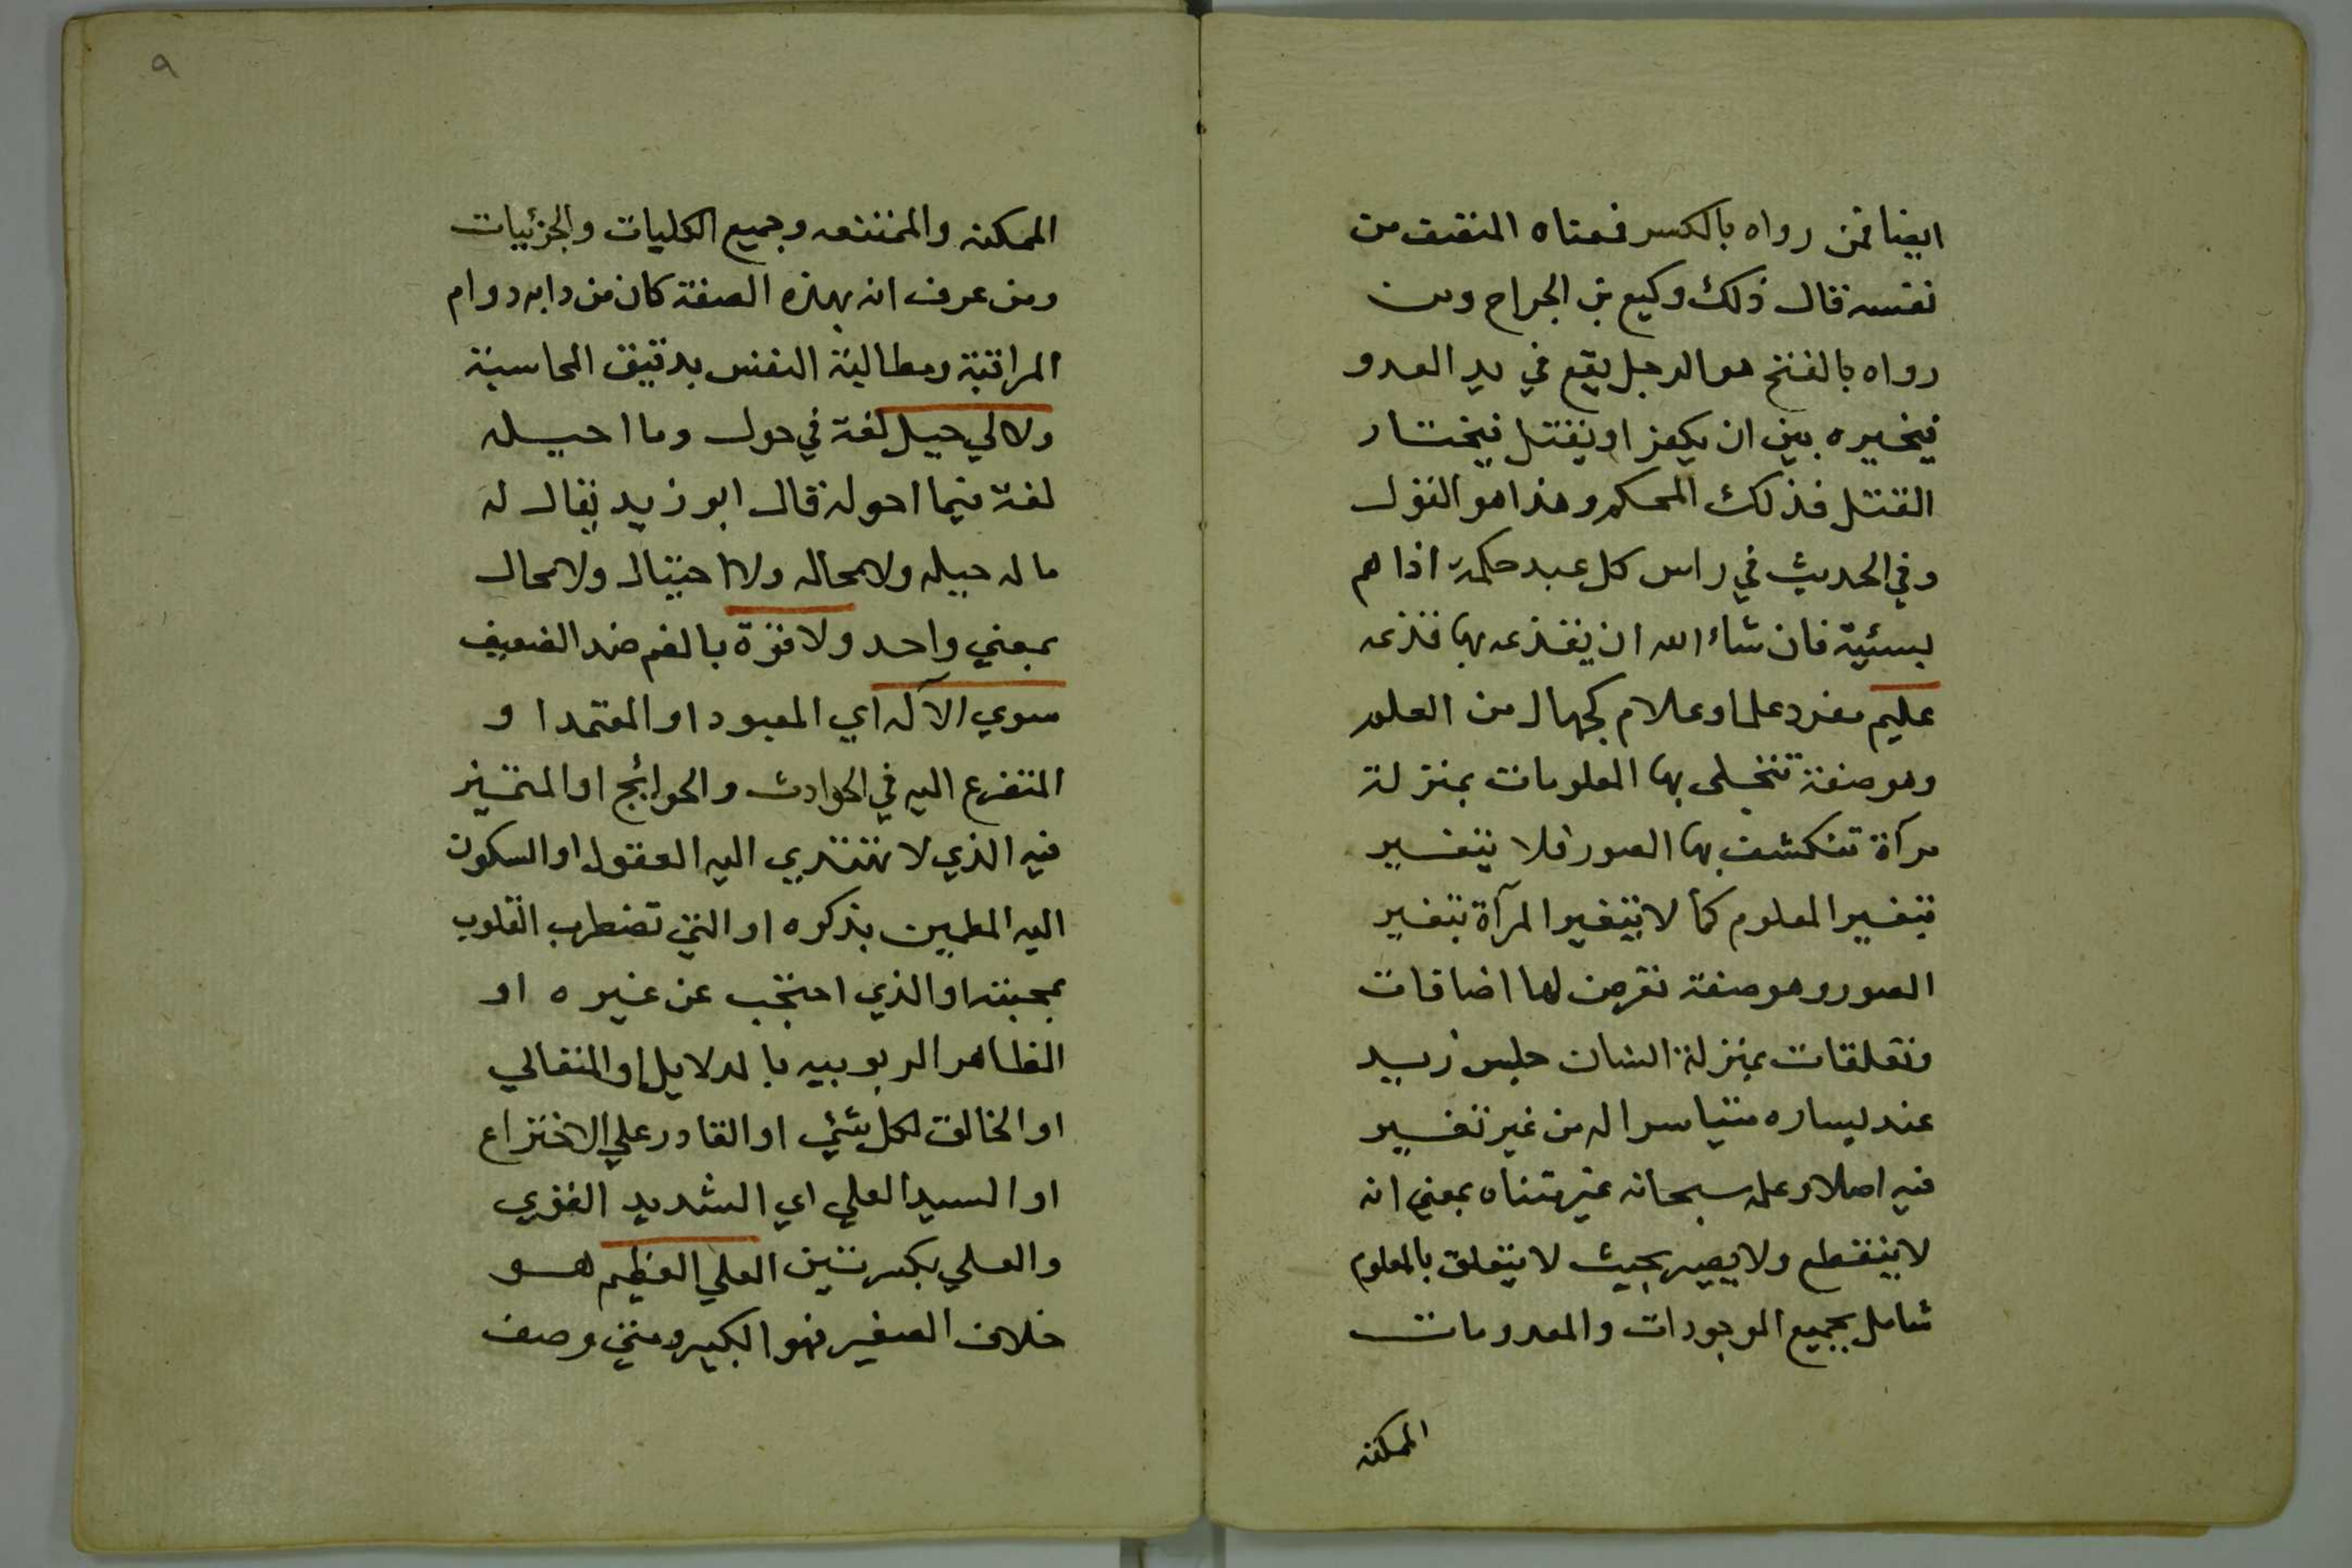 ايضا فمن رواه بالكسر فمعناه المنصف من
نفسه قال ذلك وكيع بن الجراح ومن
رواه بالفتح هو الرجل يقع في يد العدو
فيخيره بين ان يكفر او يقتل فيختار
القتل فذلك المحكم وهذا هو القول
وفي الحديث في راس كل عبد حكمة اذا هم
بسيئة فان شاء الله ان يقذعه بها قذعه
عليم مفرد علما وعلام كجهال من العلم
وهو صفة تتجلى بها المعلومات بمنزلة
مرآة تنكشف بها الصور فلا يتغير
بتغير المعلوم كما لا يتغير المرآة بتغير
الصور وهو صفة تعرض لها اضافات
وتعلقات بمنزلة انسان جلس زيد
عند يساره متياسرا له من غير تغيير
فيه اصلا وعلمه سبحانه غير متناه بمعني انه
لا ينقطع ولا يصير بحيث لا يتعلق بالمعلوم
شامل بجميع الموجودات والمعدومات
الممكنه
٩
الممكنه والممتنعه وجميع الكليات والجزئيات
ومن عرف انه بهذه الصفة كان من دابه دوام
المراقبة ومطالبة النفس بدقيق المحاسبة
ولا لي حيل لغة في حول وما احيله
لغة فيما احوله قال ابو زيد يقال له
ماله حيله ولا محاله ولا احتيال ولا محال
بمعني واحد ولا قوة بالضم ضد الضعيف
سوي الآله اي المعبود او المعتمد او
المتضرع اليه في الحوادث والحوائج او المتحير
فيه الذي لا تهتدي اليه العقول او السكون
اليه المطمين بذكره او التي تضطرب القلوب
بمحبته او الذي احتجب عن غيره او
الظاهر الربوبيه بالدلايل او المتعالي
او الخالق لكل شئي او القادر علي الاختراع
او السيد العلي اي الشديد القوي
والعلي بكسرتين العلي العظيم هو
خلاف الصغير فهو الكبير ومتي وصف